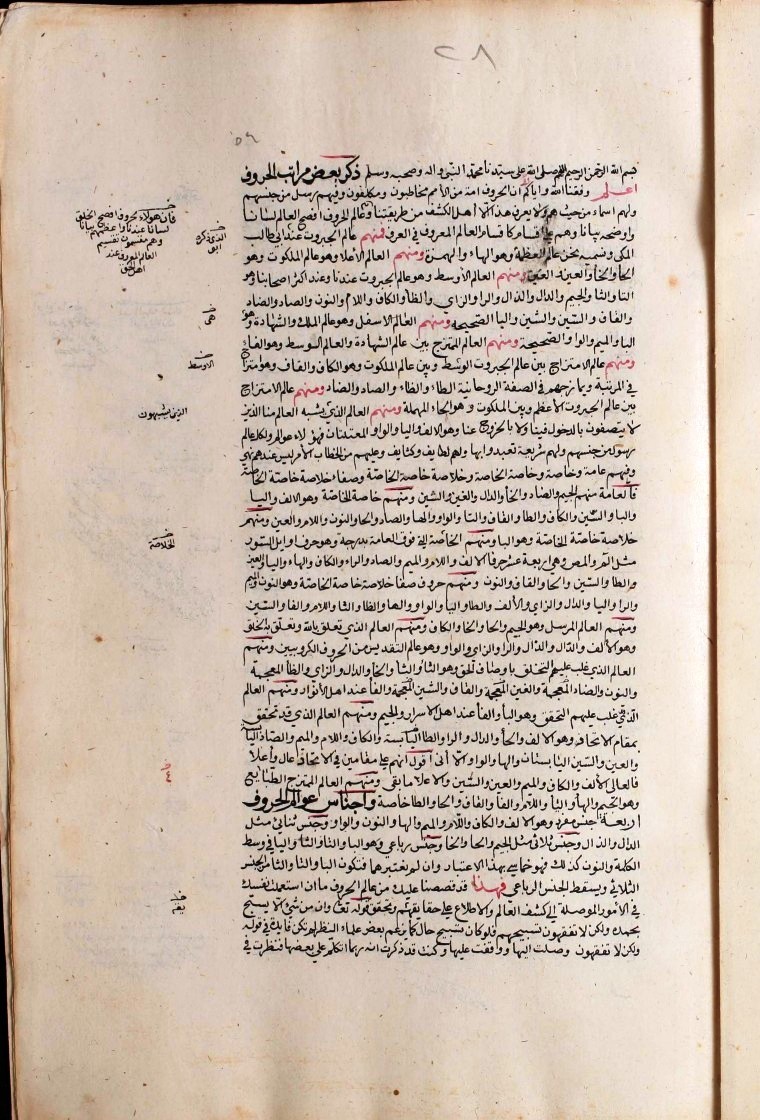 ٢٨
٥٦
بسم الله الرحمن الرحيم اللهم صلى الله على سيدنا محمد النبي واله وصحبه وسلم ذكر بعض مراتب الحروف
اعلم وفقنا الله واياكم ان الحروف امة من الامم مخاطبون ومكلفون وفيهم رسل من جنسهم
ولهم اسماء من حيث هم ولا يعرف هذا الا اهل الكشف من طريقتنا وعالم الحروف افصح العالم لسانا
واوضحه بيانا وهم على اقسام كاقسام العالم المعروف في العرف فمنهم عالم الجبروت عند ابي طالب
المكي ونسميه نحن عالم العظمة وهو الهاء والهمزة ومنهم العالم الاعلا وهو عالم الملكوت وهو
الحا والخا والعين والغين ومنهم العالم الاوسط وهو عالم الجبروت عندنا وعند اكثر اصحابنا وهو
التا والثا والجيم والدال والذال والرا والزاي والظا والكاف واللام والنون والصاد والضاد
والقاف والسين والشين واليا الصحيحه ومنهم العالم الاسفل وهو عالم الملك والشهادة وهو
البا والميم والواو الصحيحة ومنهم العالم الممتزج بين عالم الشهادة والعالم الوسط وهو الفاء
ومنهم عالم الامتزاج بين عالم الجبروت الوسط وبين عالم الملكوت وهو الكاف والقاف وهو امتزاج
في المرتبة ويمازجهم في الصفة الروحانية الطاء والظاء والصاد والضاد ومنهم عالم الامتزاج
بين عالم الجبروت الاعظم وبين الملكوت وهو الحاء المهملة ومنهم العالم الذي يشبه العالم منا الذين
لا يتصفون بالدخول فينا ولا بالخروج عنا وهو الالف واليا والواو المعتلتان فهؤلاء عوالم ولكل عالم
رسول من جنسهم ولهم شريعة تعبدوا بها ولهم لطايف وكثايف وعليهم من الخطاب الامر ليس عندهم نهي
وفيهم عامة وخاصة وخاصة الخاصة وخلاصة خاصة الخاصة وصفاء خلاصة خاصة الخاصة
فالعامة منهم الجيم والضاد والخا والدال والغين والشين ومنهم خاصة الخاصة وهو الالف واليا
والبا والسين والكاف والطا والقاف والتا والواو والها والصاد والحا والنون واللام والغين ومنهم
خلاصة خاصة الخاصة وهو البا ومنهم الخاصة التي فوق العامة بدرجة وهو حرف اوايل السور
مثل الم والمص وهي اربعة عشر حرفا الالف واللام والميم والصاد والراء والكاف والهاء واليا والعين
والطا والسين والحا والقاف والنون ومنهم حروف صفاء خلاصة خاصة الخاصة وهو النون والميم
والرا واليا والدال والزاي والالف والطا واليا والواو والها والظا والثا واللام والفا والسين
ومنهم العالم المرسل وهو الجيم والحا والخا والكاف ومنهم العالم الذي تعلق بالله وتعلق به الخلق
وهو الالف والدال والذال والرا والزاي والواو وهو عالم التقديس من الحروف الكروبيين ومنهم
العالم الذي غلب عليهم التخلق باوصاف الحق وهو التا والثا والحا والذال والزاي والظا المعجمة
والنون والضاد المعجمة والغين المعجمة والقاف والشين المعجمة والفا عند اهل الانوار ومنهم العالم
الذي قد غلب عليهم التحقق وهو البا والفا عند اهل الاسرار والجيم ومنهم العالم الذي قد تحقق
بمقام الاتحاد وهو الالف والحا والدال والرا والطا اليابسة والكاف واللام والميم والصاد اليابسة
والعين والسين اليابستان والها والواو الا اني اقول انهم على مقامين في الاتحاد عال واعلا
فالعالي الالف والكاف والميم والعين والسين والاعلا ما بقي ومنهم العالم الممتزج الطبايع
وهو الجيم والها والثا واللام والفا والقاف والحا والظا خاصة واجناس عوالم الحروف
اربعة جنس مفرد وهو الالف والكاف واللام والميم والها والنون والواو وجنس ثنائي مثل
الدال والذال وجنس ثلاثي مثل الجيم والحا والخا وجنس رباعي وهو البا والتا والثا واليا في وسط
الكلمة والنون كذلك فهو خماسي بهذا الاعتبار وان لم نعتبرهما فتكون البا والتا والثا من الجنس
الثلاثي ويسقط الجنس الرباعي فبهذا قد قصصنا عليك من عالم الحروف ما ان استعملت نفسك
في الامور الموصلة الى كشف العالم والاطلاع على حقايقهم وتحقق قوله تعالى وان من شيء الا يسبح
بحمده ولكن لا تفقهون تسبيحهم فلو كان تسبيح حال كما زعم بعض علماء النظر لم تكن فايدة في قوله
ولكن لا تفقهون وصلت اليها ووقفت عليها وكنت قد ذكرت انه ربما اتكلم على بعضها فنظرت في
فان هولاء حروف افصح الخلق
لسانا عندنا واعظمهم بيانا
وهم مقسمون تقسيم
العالم المعروف عند
اهل الحق
الذي ذكره
ابو
هي
الاوسط
الذين يشبهون
الخلاصة
٤